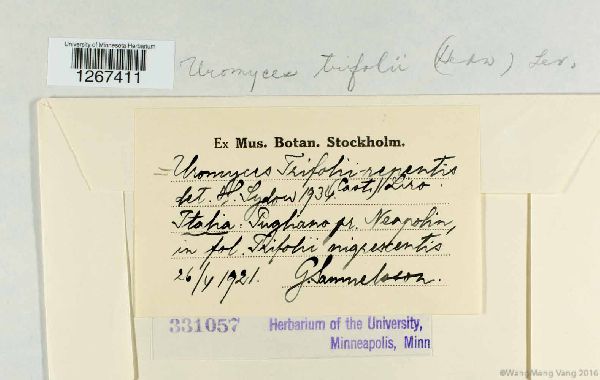 University of Minnesota Herbarium
1267411
Uromyces trifolii (Hedw) Lev.
Ex Mus. Botan. Stockholm.
= Uromyces Trifolii-repentis
(Cast.) Liro.
det. H. Sydow 1934
Italia. Pugliano pr. Neapolin,
in fol. Trifolii nigrescentis
26/4 1921. G. Samuelsson.
331057 Herbarium of the University,
Minneapolis, Minn
©WangMang Vang 2016